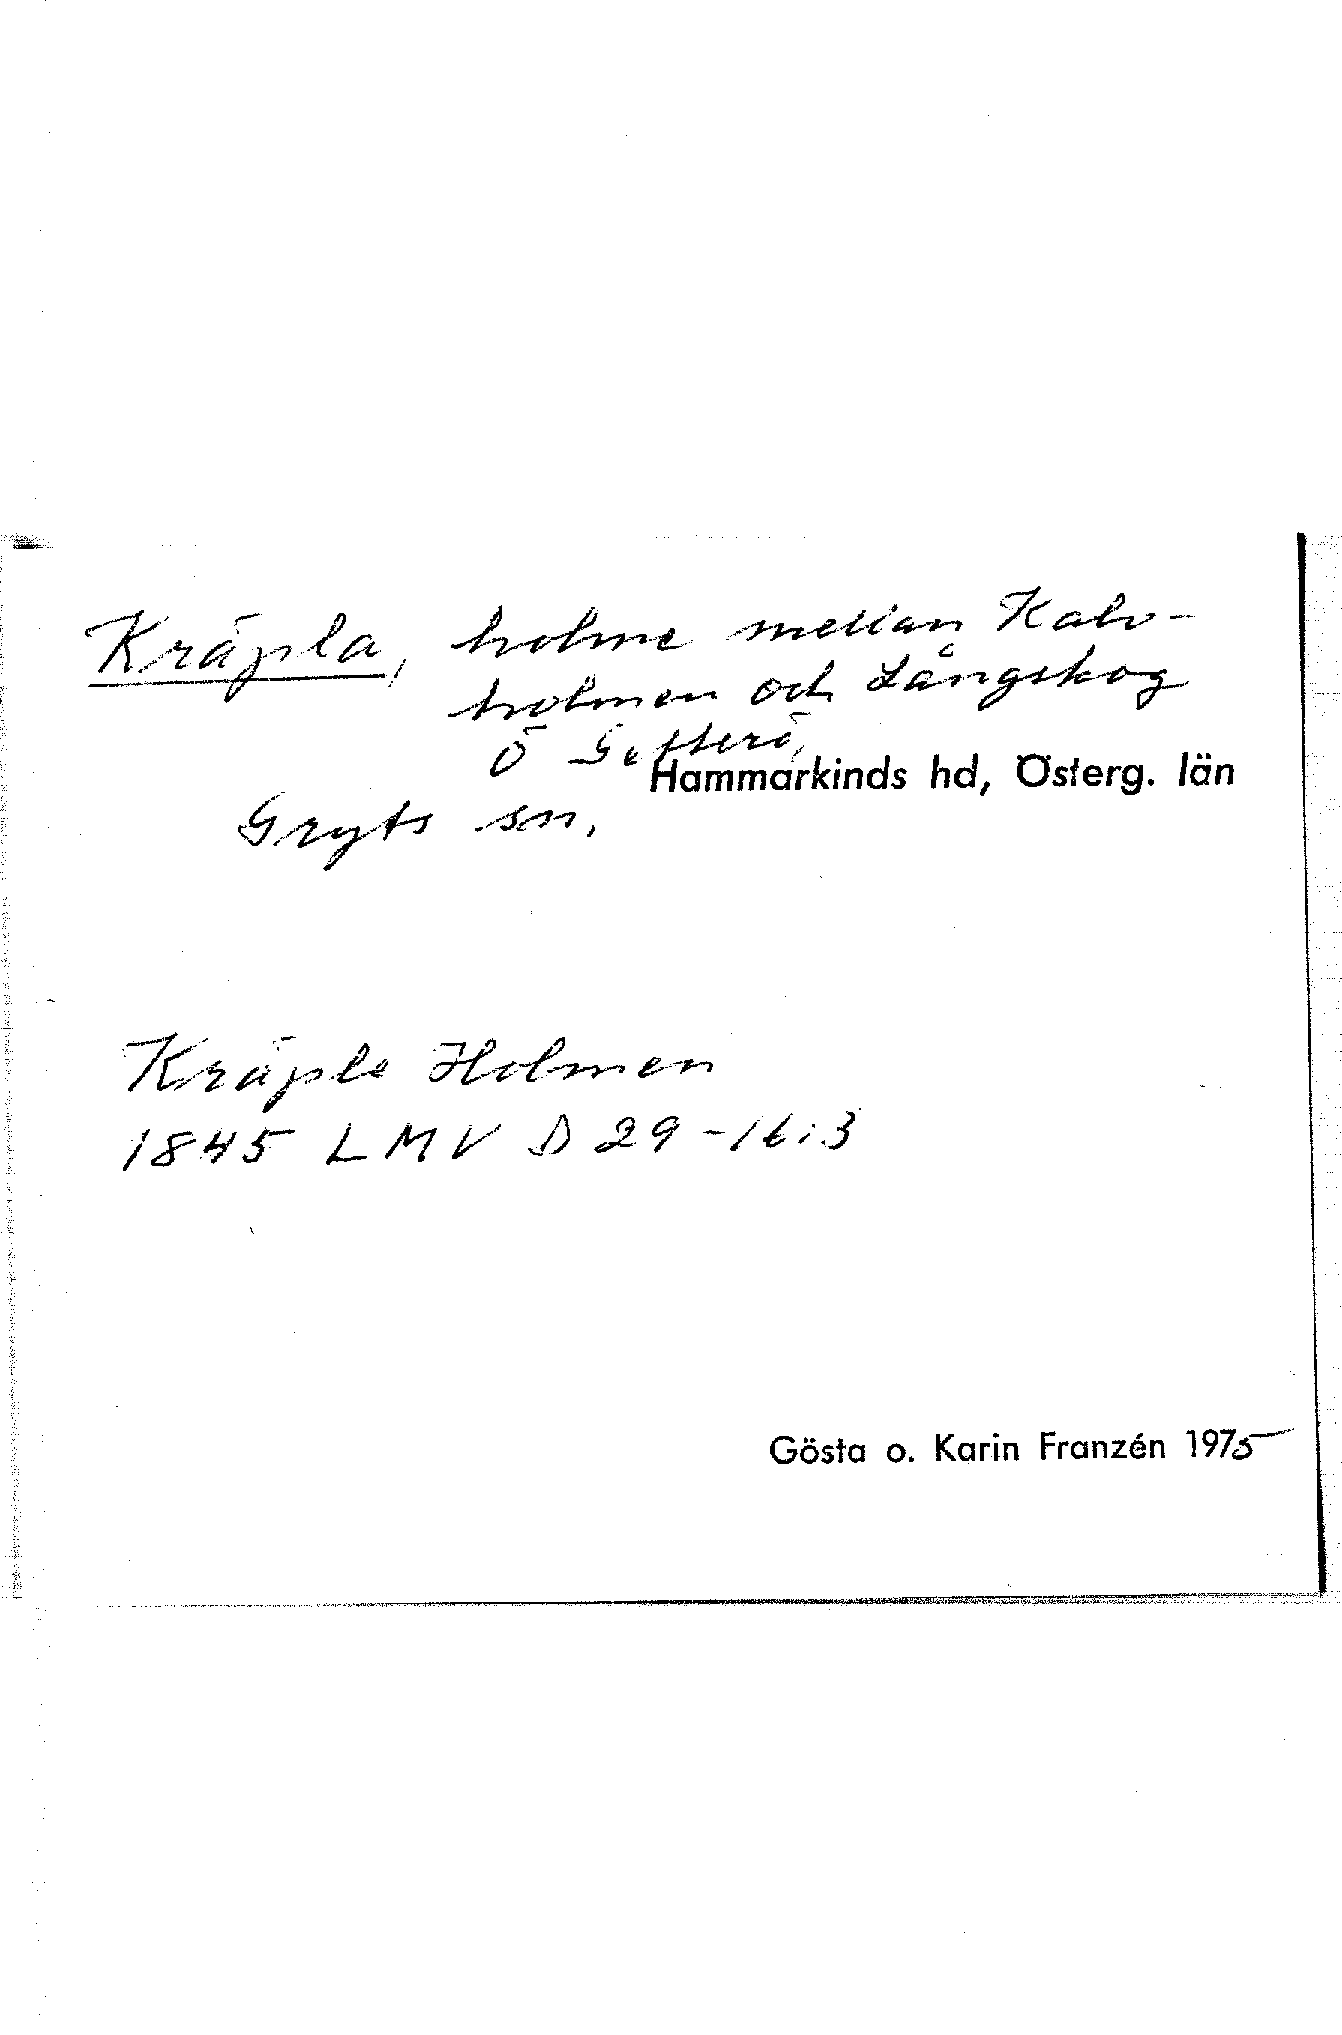 Kräpla, holme mellan Kalv-
holmen och Långskog
Ö Getterö,
Hammarkinds hd, Österg. län
Gryts sn.
Kräple Holmen
1845 LMV D 29-16:3
Gösta o. Karin Franzén 1975